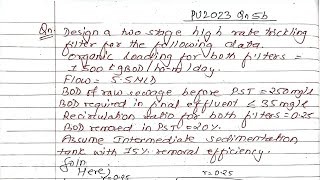 PU2023 Qn 5b
Qn: Design a two stage high rate trickling
filter for the following data.
Organic loading for both filters =
1500 kgBOD/ha-m/day.
Flow = 5.5MLD
BOD of raw sewage before PST = 250mg/l
BOD required in final effluent ≤ 35mg/l
Recirculation ratio for both filters = 0.25
BOD removed in PST = 20%.
Assume Intermediate sedimentation
tank with 15% removal efficiency.
Soln
Here,
r=0.25 r=0.25